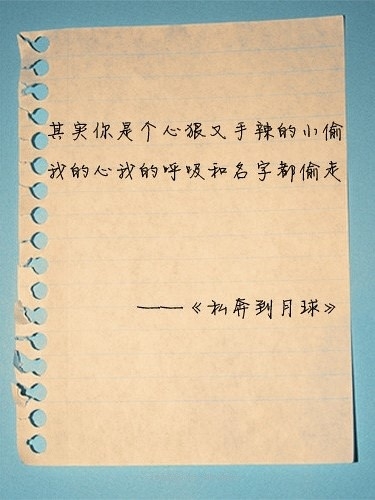 其实你是个心狠又手辣的小偷
我的心我的呼吸和名字都偷走
——《私奔到月球》